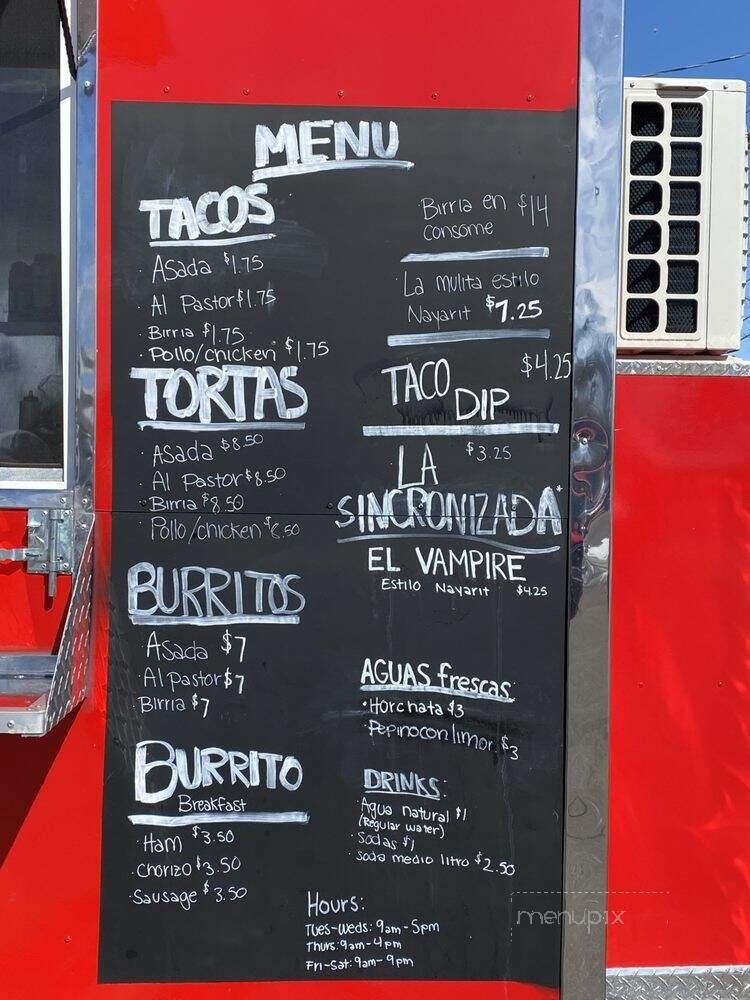 MENU
TACOS
· Asada $1.75
· Al Pastor $1.75
· Birria $1.75
· Pollo/chicken $1.75
TORTAS
· Asada $8.50
· Al Pastor $8.50
· Birria $8.50
· Pollo/chicken $8.50
BURRITOS
· Asada $7
· Al pastor $7
· Birria $7
BURRITO
Breakfast
· Ham $3.50
· Chorizo $3.50
· Sausage $3.50
· Birria en $14
consome
· La mulita estilo
Nayarit $7.25
TACO DIP $4.25
LA $3.25
SINCRONIZADA*
EL VAMPIRE
Estilo Nayarit $4.25
AGUAS frescas:
· Horchata $3
· Pepino con limon $3
DRINKS:
· Agua natural $1
(Regular water)
· Sodas $1
· soda medio litro $2.50
Hours:
Tues-Weds: 9am-5pm
Thurs: 9am-4pm
Fri-Sat: 9am-9pm
menupix